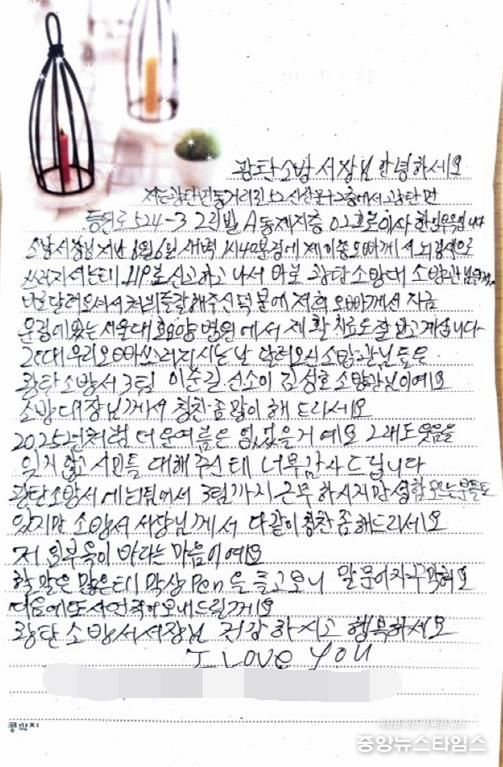 광탄소방서장님 안녕하세요
저는 광탄면
등원로 524-3 2층빌 A동 제지층 02호로 이사 한
소방서장님 지난 8월 6일 새벽 1시 40분경에 제 이종오빠께서 뇌경색으로
쓰러지셔는데 119로 신고하고 나서 바로 광탄소방대 소방관님들께서
달려오셔서 처치를 잘해주신 덕분에 저희 오빠께선 지금
운정에 있는 서울대효요양병원에서 재활치료도 잘 받고 계십니다
그런데 우리 오빠 쓰러지시는 날 달려오신 소방관님들은
광탄소방서 3팀 이순길 선소이 김성호 소방관님이예요
소방대장님께서 칭찬 좀 많이 해 드리세요
2025년처럼 더운 여름은 없었을거예요 그래도 웃음을
잊지 않고 시민들 대해주신테 너무 감사드립니다
광탄소방서에 1팀에서 3팀까지 근무하시지만 성함 모르는 분들도
있지만 소방서 서장님께서 다같이 칭찬 좀 해드리세요
저 외부육이 바라는 마음이예요
할 말은 많은데 막상 Pen을 들고 보니 말문이 자꾸 막혀요
다음에 또 사연 적어 보내드릴께요
광탄 소방서 서장님 건강하시고 행복하세요
I LOVE YOU
콩깍지
중앙뉴스타임스